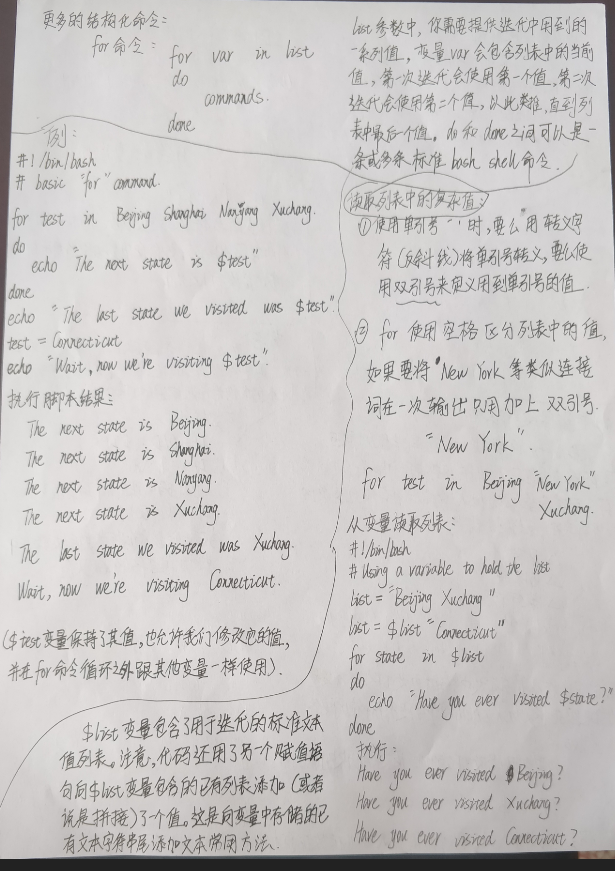 更多的结构化命令:
for 命令: for var in list
do
commands.
done
list 参数中, 你需要提供迭代中用到的
一系列值, 变量var会包含列表中的当前
值, 第一次迭代会使用第一个值, 第二次
迭代会使用第二个值, 以此类推, 直到列
表中最后一个值。do 和 done 之间可以是一
条或多条标准 bash shell 命令.
例:
#!/bin/bash
# basic "for" command.
for test in Beijing Shanghai Nanyang Xuchang.
do
echo "The next state is $test"
done
echo "The last state we visited was $test".
test = Connecticut
echo "Wait, now we're visiting $test".
执行脚本结果:
The next state is Beijing.
The next state is Shanghai.
The next state is Nanyang.
The next state is Xuchang.
The last state we visited was Xuchang.
Wait, now we're visiting Connecticut.
($test变量保持了其值, 也允许我们修改它的值,
并在for命令循环之外跟其他变量一样使用).
读取列表中的复杂值:
① 使用单引号 '' 时, 要么用转义字
符(反斜线)将单引号转义, 要么使
用双引号来定义用到单引号的值.
② for 使用空格区分列表中的值,
如果要将 "New York 等类似连接
词在一次输出只用加上双引号.
"New York".
for test in Beijing "New York"
Xuchang.
从变量读取列表:
#!/bin/bash
# Using a variable to hold the list
list = "Beijing Xuchang"
list = $list "Connecticut"
for state in $list
do
echo "Have you ever visited $state?"
done
执行:
Have you ever visited Beijing?
Have you ever visited Xuchang?
Have you ever visited Connecticut?
$list 变量包含了用于迭代的标准文本
值列表。注意, 代码还用了另一个赋值语
句向$list变量包含的已有列表添加(或者
说是拼接)了一个值。这是向变量中存储的已
有文本字符串尾添加文本常用方法.